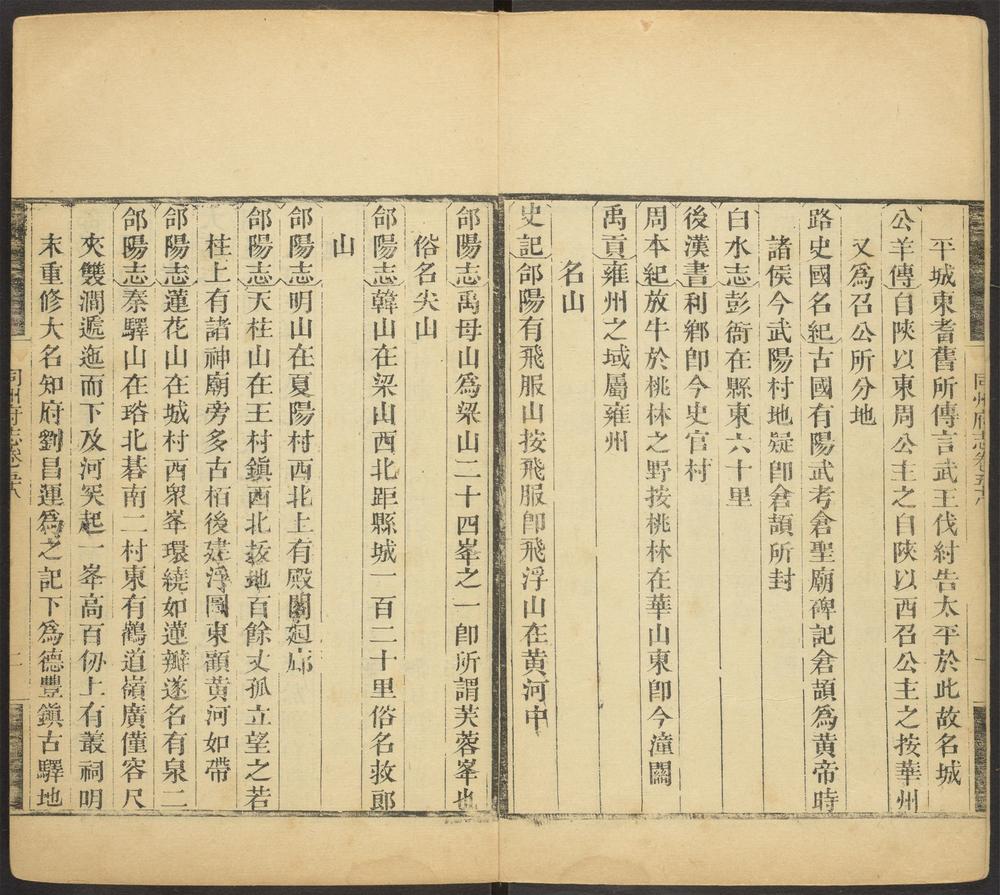 平城東耆舊所傳言武王伐紂告太平於此故名城
公羊傳自陝以東周公主之自陝以西召公主之按華州
又爲召公所分地
路史國名紀古國有陽武考倉聖廟碑記倉頡爲黃帝時
諸侯今武陽村地疑卽倉頡所封
白水志彭衙在縣東六十里
後漢書利鄉卽今史官村
周本紀放牛於桃林之野按桃林在華山東卽今潼關
禹貢雍州之域屬雍州
名山
史記郃陽有飛服山按飛服卽飛浮山在黃河中
郃陽志禹母山爲梁山二十四峯之一卽所謂芙蓉峯也
俗名尖山
郃陽志韓山在梁山西北距縣城一百二十里俗名救郎
山
郃陽志明山在夏陽村西北上有殿閣廻廊
郃陽志天柱山在王村鎮西北拔地百餘丈孤立望之若
柱上有諸神廟旁多古栢後建浮圖東顧黃河如帶
郃陽志蓮花山在城村西衆峯環繞如蓮瓣遂名有泉二
郃陽志秦驛山在珞北碁南二村東有鸛道嶺廣僅容尺
夾雙澗遞迤而下及河突起一峯高百仞上有叢祠明
末重修大名知府劉昌運爲之記下爲德豐鎮古驛地
同州府志卷
一
同州府志卷
二